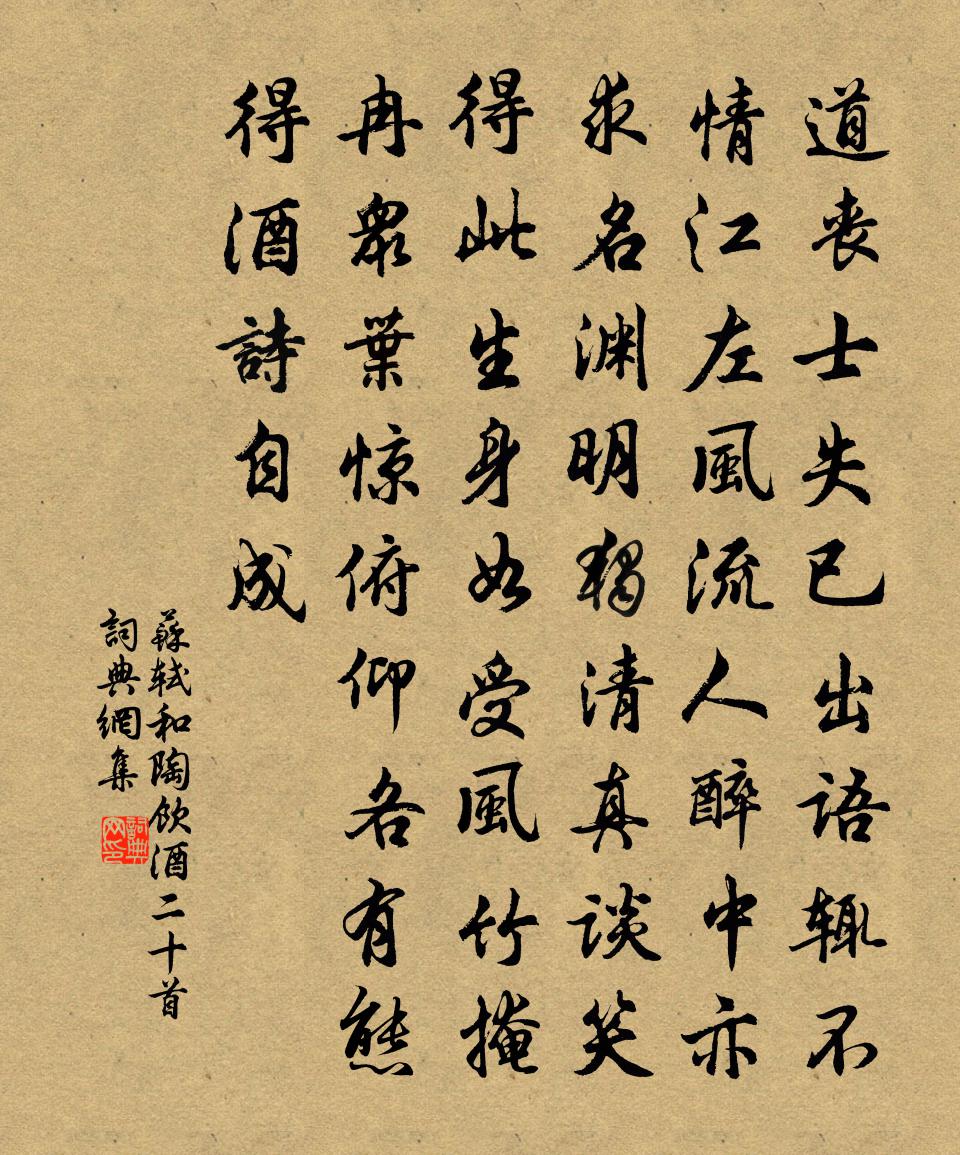 道喪士失已出語輒不
情江左風流人醉中亦
求名渊明獨清真談笑
得此生身如受風竹掩
冉衆葉惊俯仰各有態
得酒詩自成
蘇軾和陶飲酒二十首
詞典網集
詞典网印